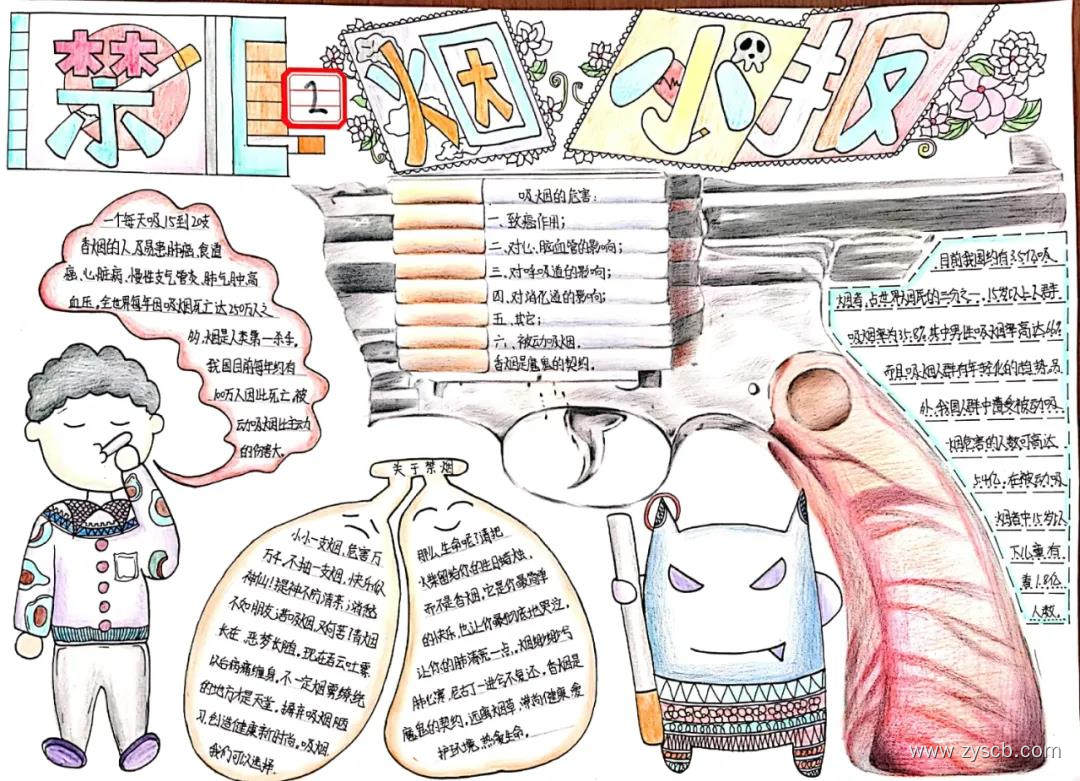 禁 烟 小报
2
一个每天吸15到20支
香烟的人,及易患肺癌,食道
癌、心脏病、慢性支气管炎、肺气肿、高
血压,全世界每年因吸烟死亡达250万人之
多,烟是人类第一杀手,
我国目前每年约有
100万人因此死亡,被
动吸烟比主动
的伤害大。
吸烟的危害:
一、致癌作用;
二、对心、脑血管的影响;
三、对呼吸道的影响;
四、对消化道的影响;
五、其它;
六、被动吸烟.
香烟是魔鬼的契约.
目前我国约有3.5亿吸
烟者,占世界烟民的三分之一,15岁以上人群
吸烟率为35.8%其中男性吸烟率高达66%
而且吸烟人群有年轻化的趋势,另
外,我国人群中遭受被动吸
烟危害的人数可高达
5.4亿.在被动吸
烟者中15岁以
下儿童有
1.8亿
人数.
关于禁烟
小小一支烟,危害万
万千,不抽一支烟,快乐似
神仙!提神不的清茶;消愁
不如朋友;若吸烟,双
长在,恶梦长随,现在吞云吐雾
以后病痛缠身,不一定烟雾缭绕
的地方才是天堂,摒弃吸烟陋
习,创造健康新时尚。吸烟.
我们可以选择
那么,生命呢?请把
火柴留给你的生日蜡烛,
而不是香烟,它是你最简单
的快乐,也让你最彻底地累泣,
让你的肺清洗一点。烟缈缈兮
肺心寒,尼古丁一进会不复还,香烟是
魔鬼的契约,远离烟草,崇尚健康,爱
护环境,热爱生命。
www.zyscb.com